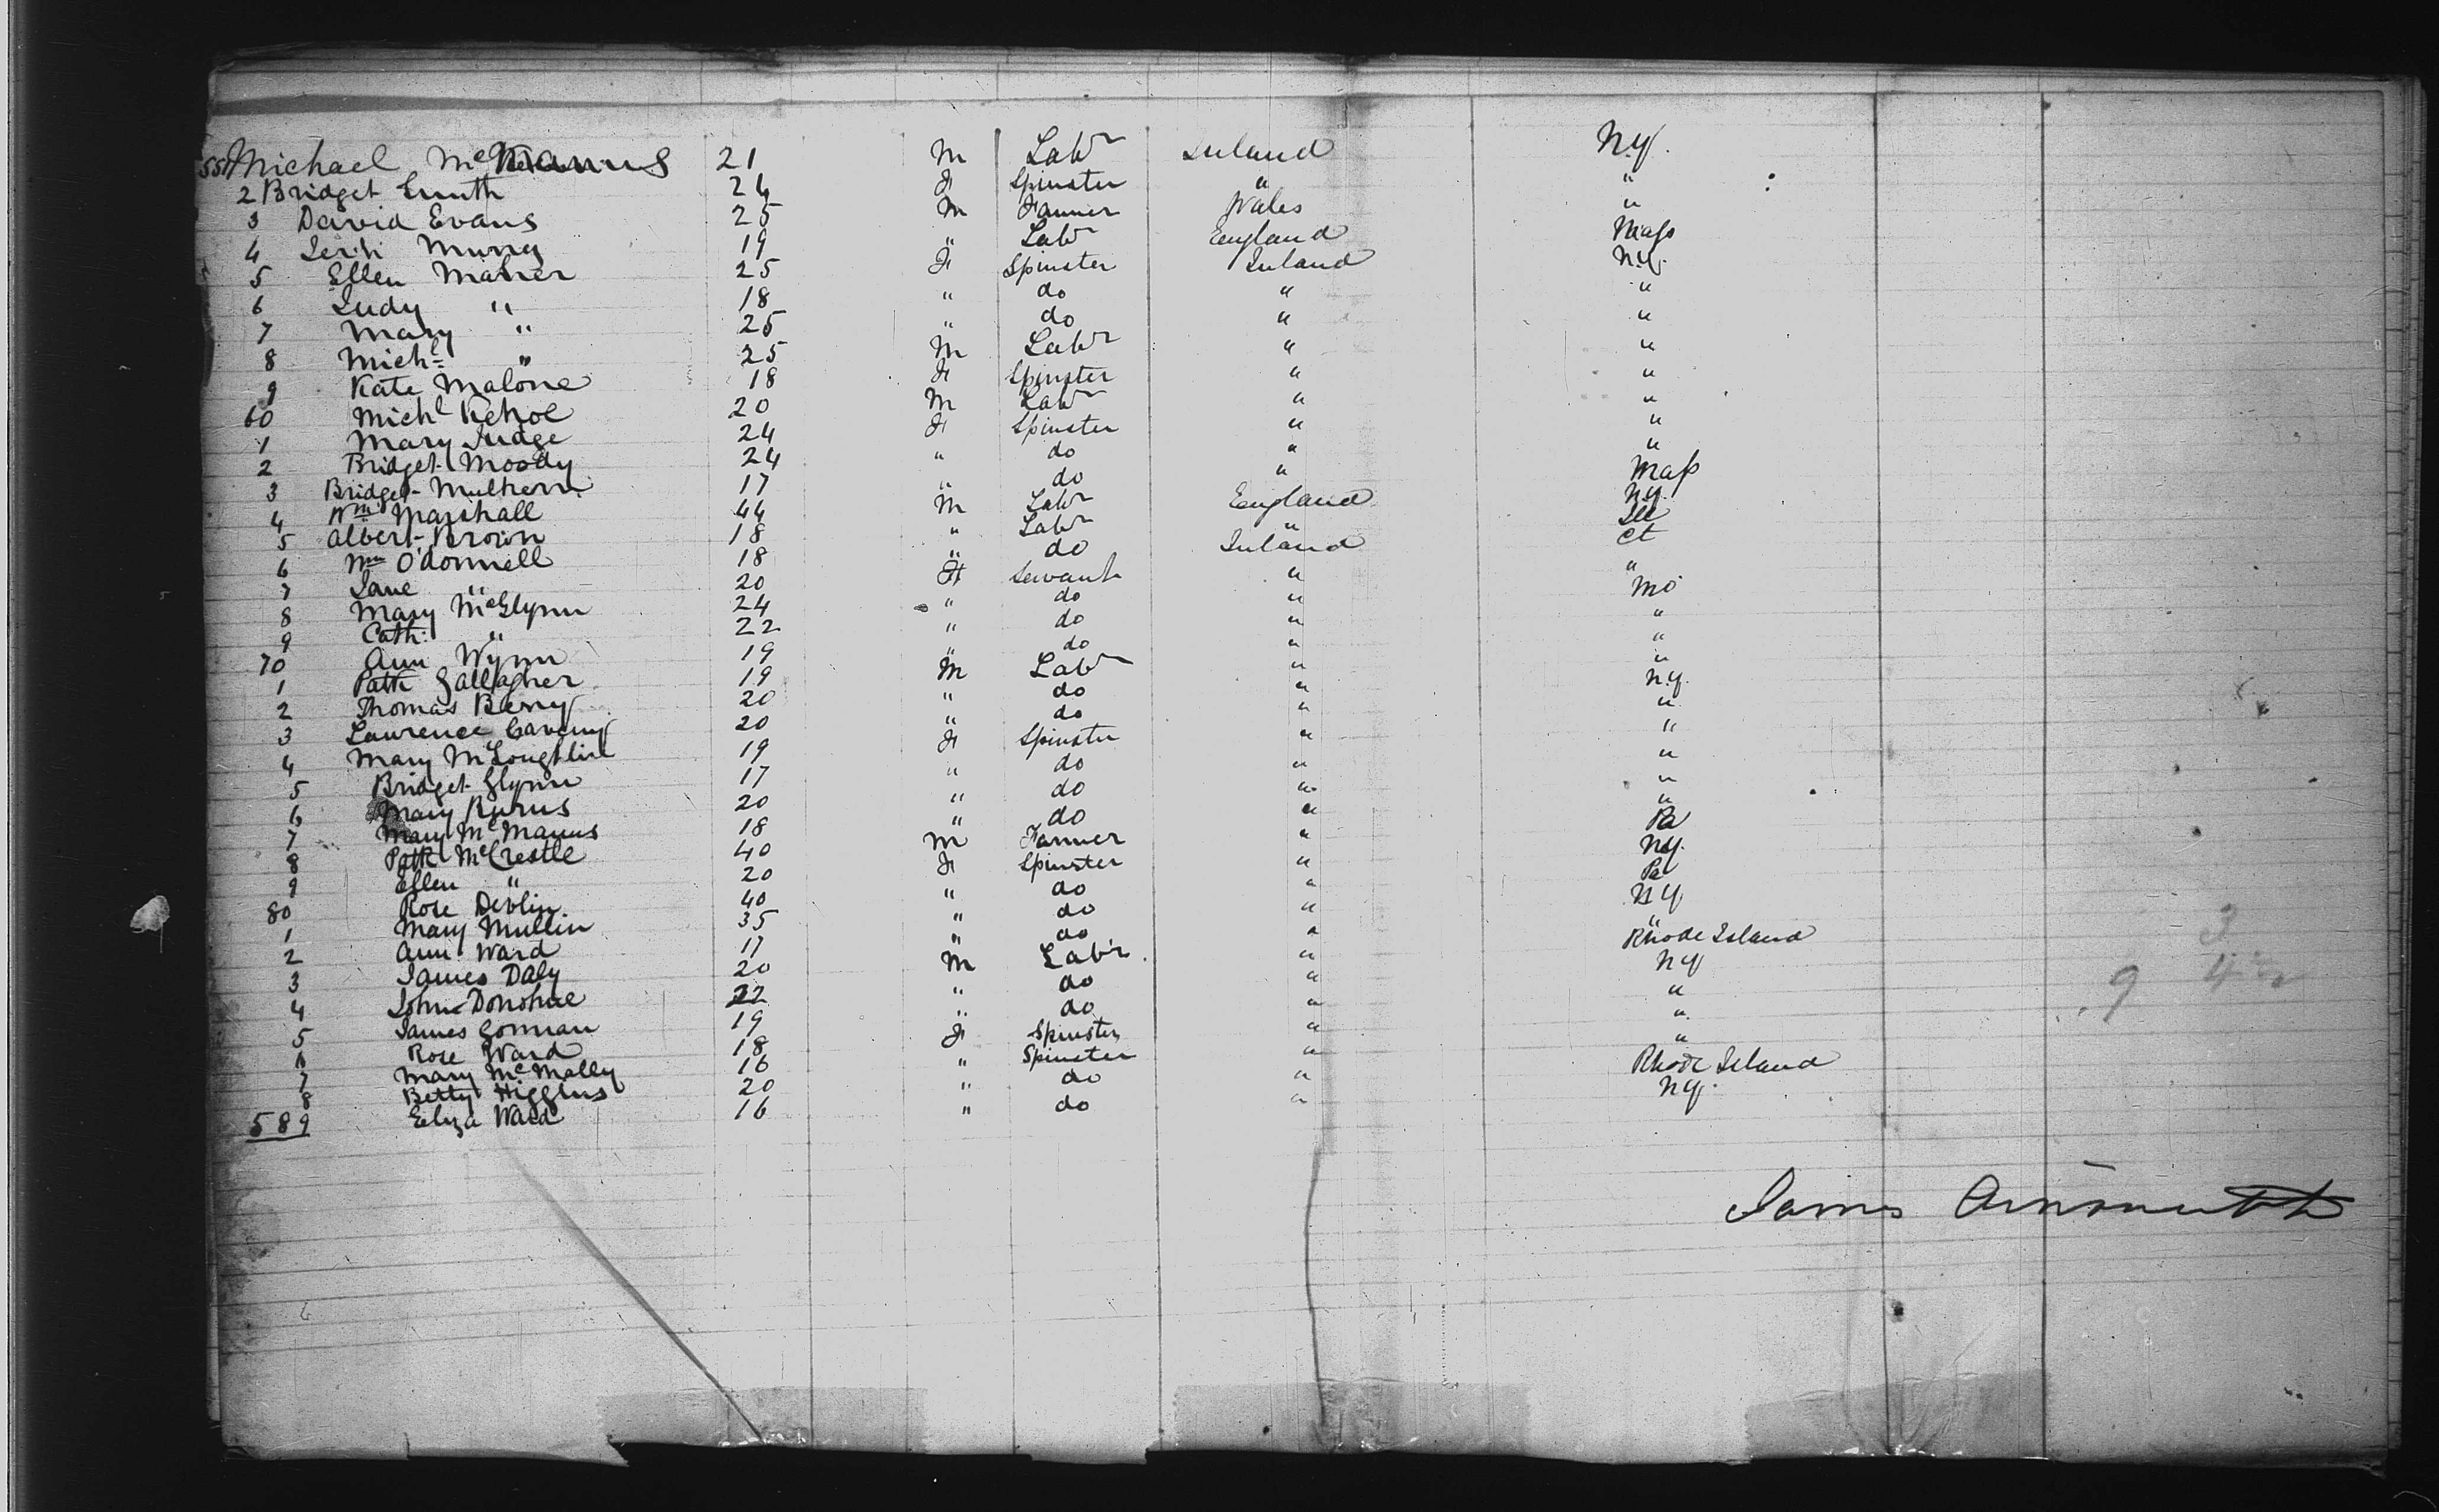 551 Michael McManus 21 M Labr Ireland N.Y.
2 Bridget Smith 24 F Spinster " "
3 David Evans 25 M Farmer Wales "
4 Murry 19 " Labr England Mass
5 Ellen Maher 25 F Spinster Ireland N.Y.
6 Judy " 18 " do " "
7 Mary " 25 " do " "
8 Michl " 25 M Labr " "
9 Kate Malone 18 F Spinster " "
60 Michl Kehoe 20 M Labr " "
1 Mary Judge 24 F Spinster " "
2 Bridget Moody 24 " do " "
3 Bridget Mulhern 17 " do " Mass
4 Wm Marshall 44 M Labr England N.Y.
5 Albert Brown 18 " Labr " Ill
6 Wm O'Donnell 18 " do Ireland Ct
7 Jane " 20 F Servant " "
8 Mary McGlynn 24 " do " Mo
9 Cath: " 22 " do " "
70 Ann Wynn 19 " do " "
1 Patk Gallagher 19 M Labr " "
2 Thomas Berry 20 " do " N.Y.
3 Lawrence 20 " do " "
4 Mary McLoughlin 19 F Spinster " "
5 Bridget Glynn 17 " do " "
6 Mary Burns 20 " do " "
7 Mary McManus 18 " do " "
8 Patk McCrestle 40 M Farmer " Pa
9 Ellen " 20 F Spinster " N.Y.
80 Rose Devlin 40 " do " Pa
1 Mary Mullin 35 " do " N.Y
2 Ann Ward 17 " do " "
3 James Daly 20 M Labr " Rhode Island
4 John Donohue 22 " do " N Y
5 James Gorman 19 " do " "
6 Rose Ward 18 F Spinster " "
7 Mary McMally 16 " Spinster " "
8 Betty Higgins 20 " do " Rhode Island
589 Eliza Ward 16 " do " N.Y.
3
9 4
James